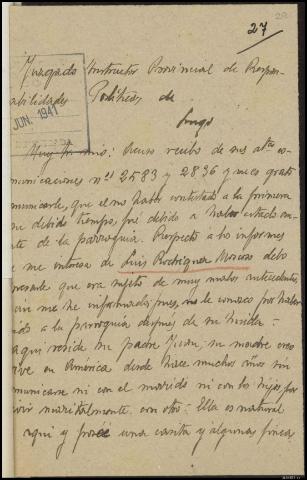 27
Juzgado Instructor Provincial de Respon-
abilidades Políticas de
Lugo
JUN. 1941
Muy Sr. mío: Acuso recibo de sus atas co-
municaciones nos 2583 y 2836 y me es grato
municarle, que el no haber contestado a la primera
su debido tiempo, fué debido a haber estado au-
te de la parroquia. Respecto a los informes
e me interesa de Luis Rodriguez Moscoso debo
presarle que era sujeto de muy malos antecedentes,
ún me he informado, pues no le conozco por haber
ado a la parroquia después de su huida.
Aquí reside su padre Juan, su madre creo
ive en América desde hace muchos años sin
municarse ni con el marido ni con los hijos, por
ivir maritalmente con otro. Ella es natural
aquí y posee una casita y algunas fincas